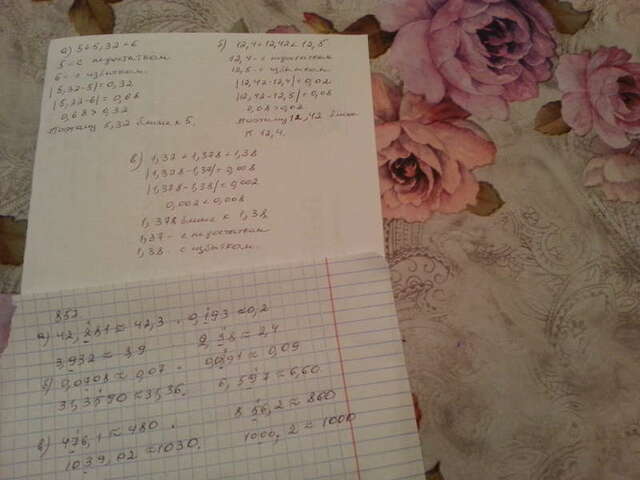 а) 5<5,32<6
5 - с недостатком
6 - с избытком.
|5,32-5|=0,32
|5,32-6|=0,68
0,68>0,32
поэтому 5,32 ближе к 5.
б) 12,4<12,42<12,5
12,4 - с недостатком
12,5 - с избытком
|12,42-12,4|=0,02
|12,42-12,5|=0,08
0,08>0,02
поэтому 12,42 ближе
к 12,4.
в) 1,37<1,378<1,38
|1,378-1,37|=0,008
|1,378-1,38|=0,002
0,002<0,008
1,378 ближе к 1,38
1,37 - с недостатком
1,38 - с избытком.
852
а) 42,281≈42,3. 0,193≈0,2
3,932≈3,9 2,38≈2,4
б) 0,0708≈0,07. 0,091≈0,09
6,597≈6,60.
в) 476,1≈480. 856,2≈860
1039,02≈1030. 1000,2≈1000